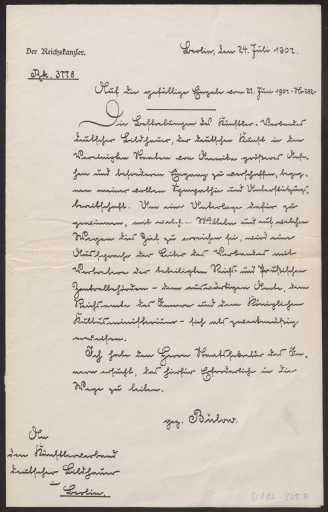 Der Reichskanzler.
Berlin, den 24. Juli 1902.
Rk. 3778.
Auf die gefällige Eingabe vom 21. Juni 1902 - N. 282.
Die Bestrebungen des Künstler-Verbandes
deutscher Bildhauer, der deutschen Kunst in den
Vereinigten Staaten von Amerika größeres Anse-
hen und besonderen Eingang zu verschaffen, begeg-
nen meiner vollen Sympathie und Unterstützungs-
bereitschaft. Um eine Unterlage dafür zu
gewinnen, mit welchen Mitteln und auf welchen
Wegen das Ziel zu erreichen sei, wird eine
Aussprache der Leiter des Verbandes mit
Vertretern der beteiligten Reichs- und Preußischen
Zentralbehörden - dem Auswärtigen Amte, dem
Reichsamte des Innern und dem Königlichen
Kultusministerium - sich als zweckmäßig
erweisen.
Ich habe den Herrn Staatssekretär des In-
nern ersucht, das hierfür Erforderliche in die
Wege zu leiten.
gez. Bülow.
An
den Künstlerverband
deutscher Bildhauer
Berlin.